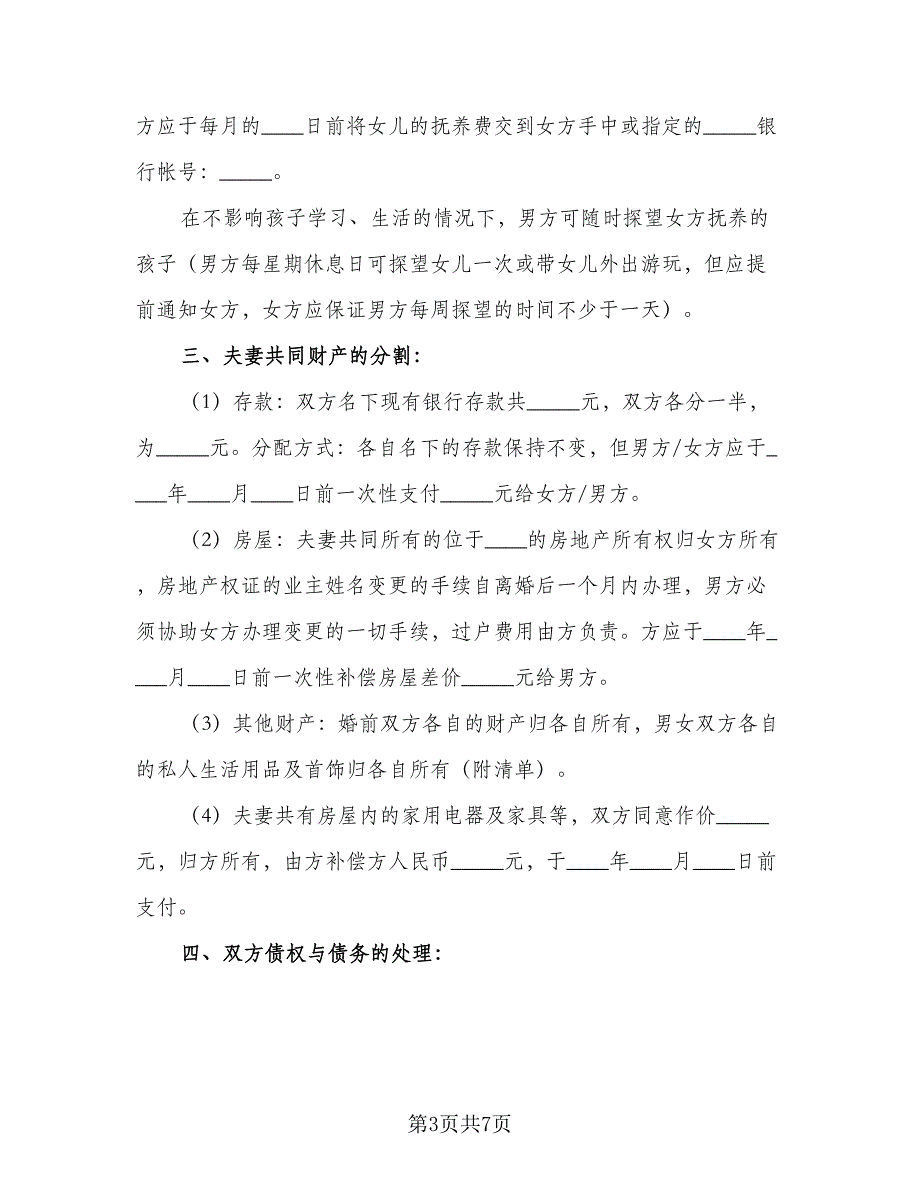 方应于每月的____日前将女儿的抚养费交到女方手中或指定的_____银
行帐号：_____。
在不影响孩子学习、生活的情况下，男方可随时探望女方抚养的
孩子（男方每星期休息日可探望女儿一次或带女儿外出游玩，但应提
前通知女方，女方应保证男方每周探望的时间不少于一天）。
三、夫妻共同财产的分割：
（1）存款：双方名下现有银行存款共_____元，双方各分一半，
为_____元。分配方式：各自名下的存款保持不变，但男方/女方应于_
___年____月____日前一次性支付_____元给女方/男方。
（2）房屋：夫妻共同所有的位于____的房地产所有权归女方所有
，房地产权证的业主姓名变更的手续自离婚后一个月内办理，男方必
须协助女方办理变更的一切手续，过户费用由方负责。方应于____年_
___月____日前一次性补偿房屋差价_____元给男方。
（3）其他财产：婚前双方各自的财产归各自所有，男女双方各自
的私人生活用品及首饰归各自所有（附清单）。
（4）夫妻共有房屋内的家用电器及家具等，双方同意作价_____
元，归方所有，由方补偿方人民币_____元，于____年____月____日前
支付。
四、双方债权与债务的处理：
第3页共7页